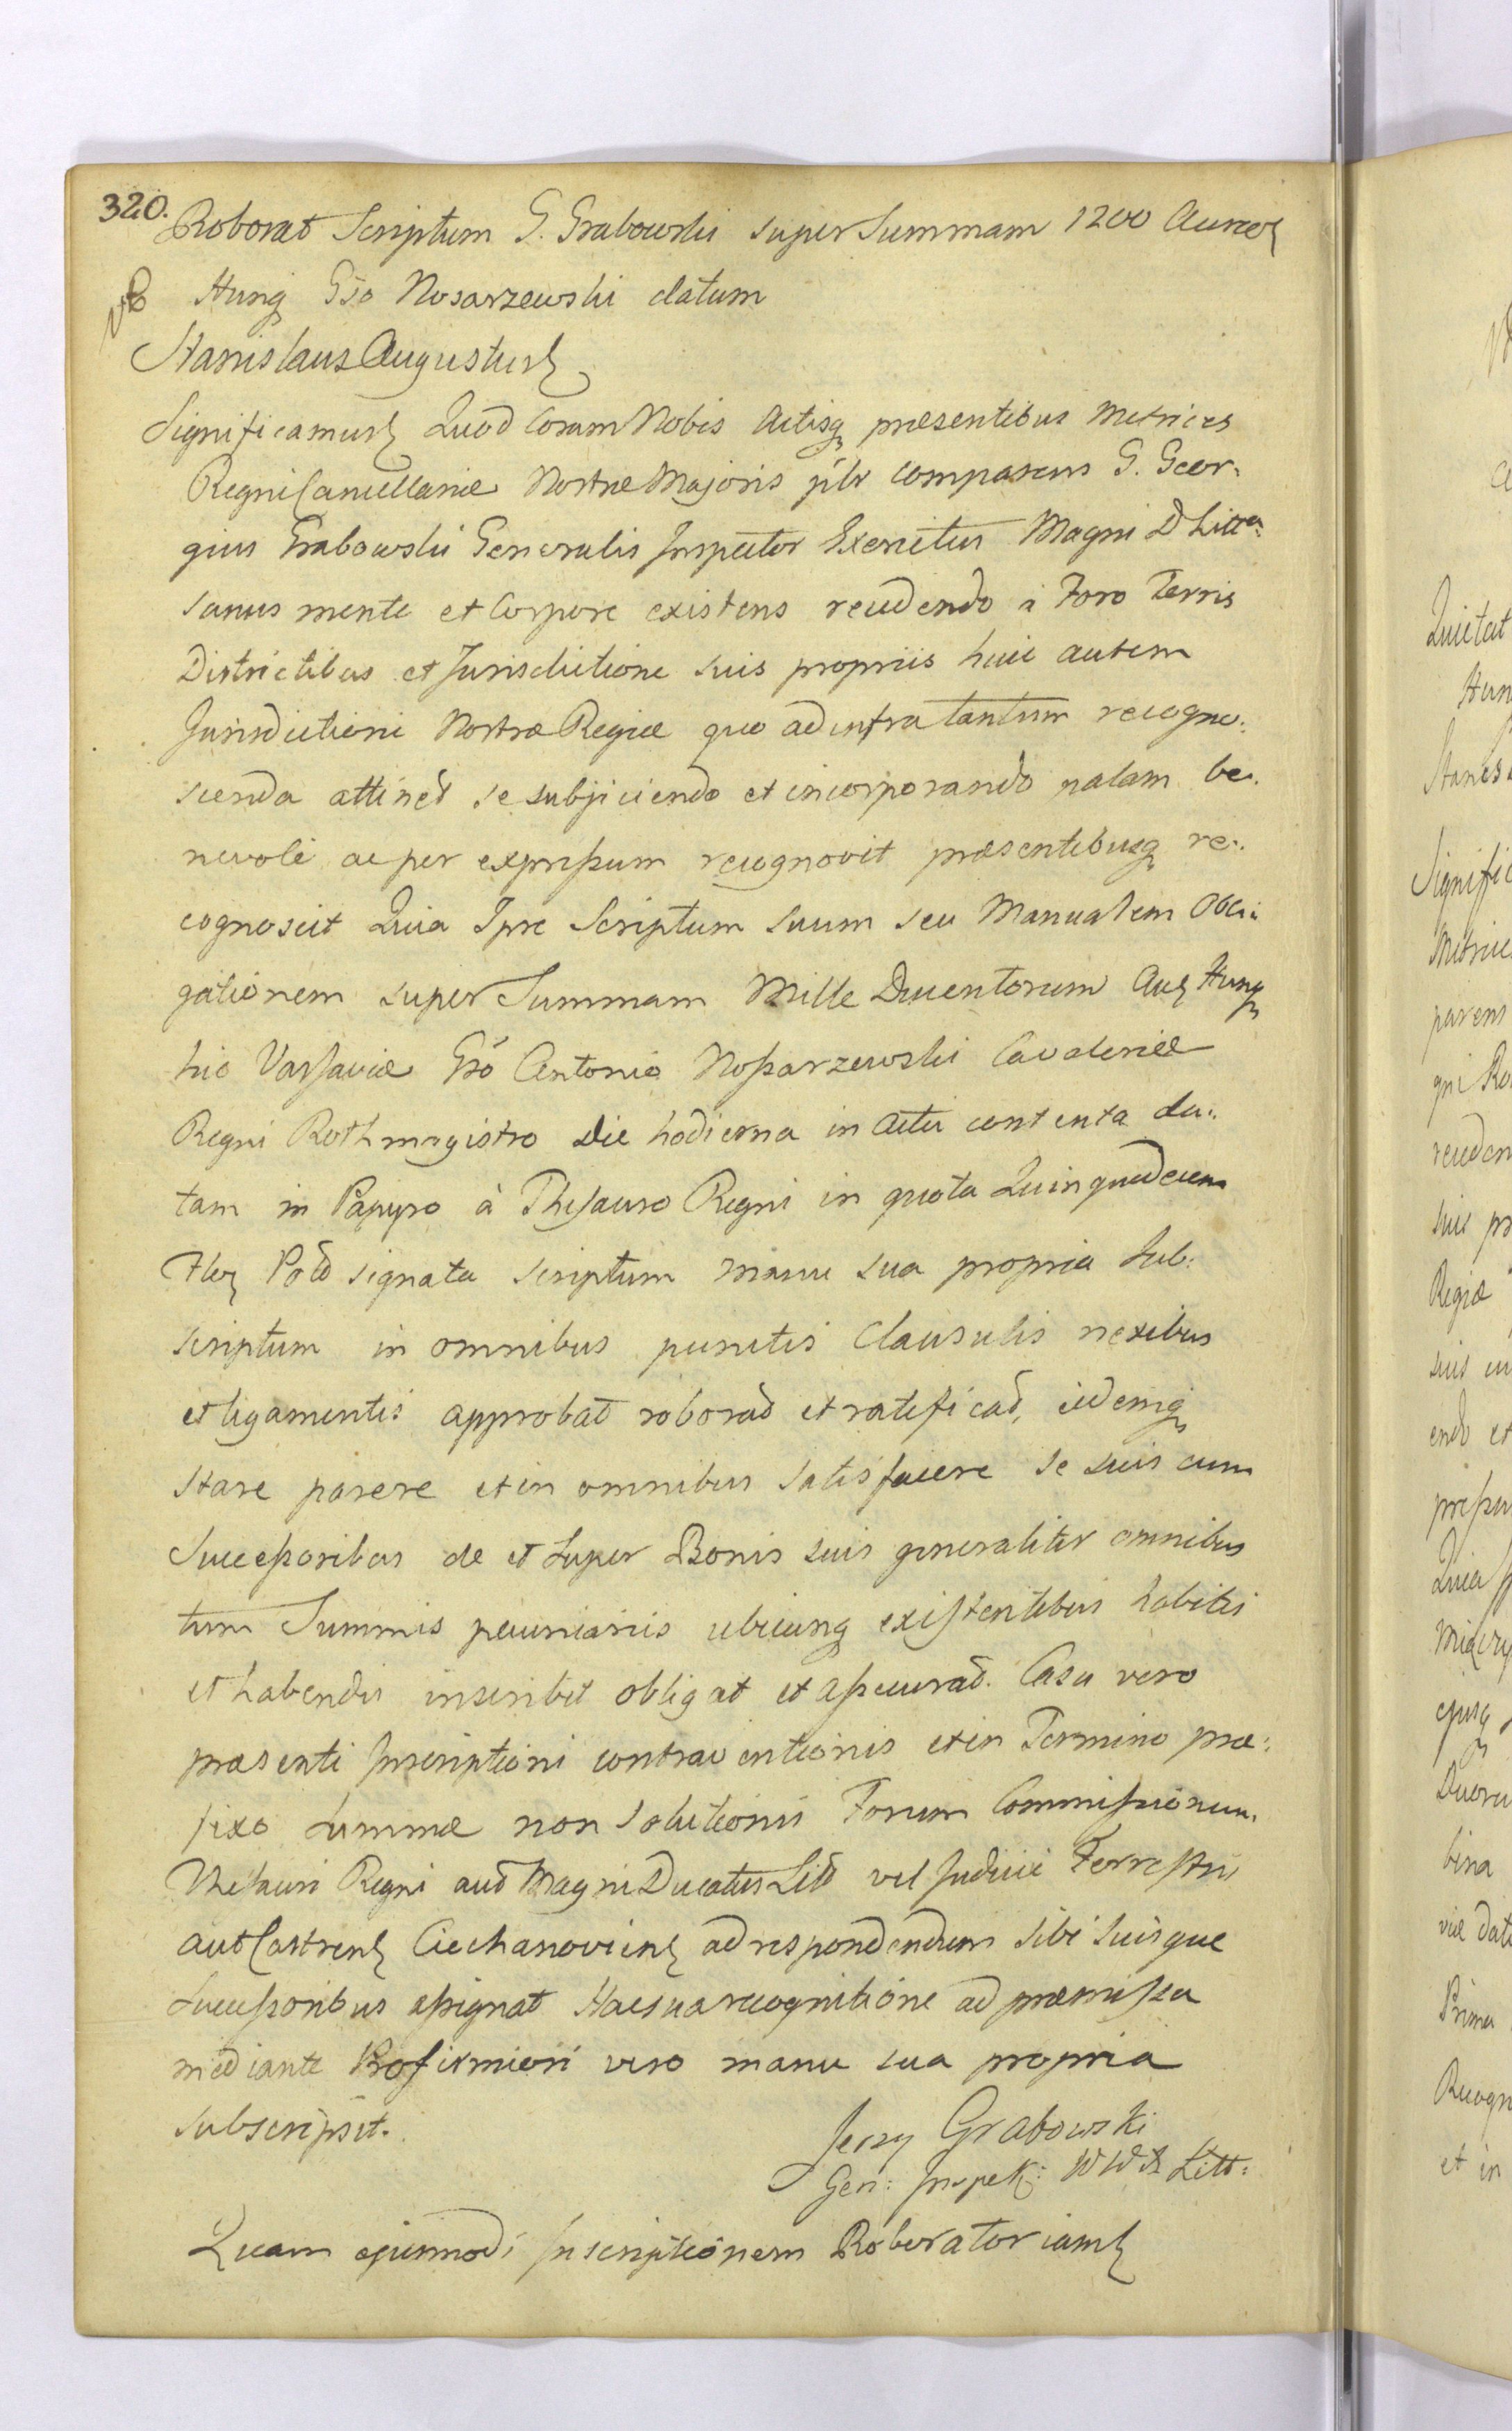 320.
Roborat Scriptum G. Grabowski super Summam 1200 Aureoꝝ
Hung Gso Nosarzewski datum
Stanislaus Augustus
Significamus Quod Coram Nobis Actisq presentibus Metrices
Regni Cancellariæ Nostræ Majoris plr comparens G. Geor:
gius Grabowski Generalis Inspector Exercitus Magni D Litt
sanus mente et Corpore existens recedendo à Foro Terris
Districtibus et Jurisdictione suis propriis huic autem
Jurisdictioni Nostræ Regiæ quo ad infra tantum recogno:
scenda attinet se subjiciendo et incorporando palam be:
nevole ac per expressum recognovit præsentibusq re:
cognoscit Quia Ipse Scriptum suum seu Manualem Obli:
gationem super Summam Mille Ducentorum Auꝝ Hung
hic Varsaviæ Gso Antonio Nossarzewski Cavaleriæ
Regni Rothmagistro die hodierna in Actu contenta da:
tam in Papyro à Thesauro Regni in quota Quinquadecem
Floꝝ Pold signata scriptum manu sua propria Sub:
scriptum in omnibus punctis Clausulis nexibus
et ligamentis approbat roborat et ratificat, eidemq
Stare parere et in omnibus Satisfacere se suis cum
Successoribus de et Super Bonis suis generaliter omnibus
tum Summis pecuniariis ubicunq existentibus habitis
et habendis inscribit obligat et assecurat. Casu vero
præsenti Inscriptioni contraventionis et in Termino præ:
fixo Summæ non Solutionis Forum Commissionum
Thesauri Regni aut Magni Ducatus Litt vel Judicii Terrestris
aut Castrens Ciechanoviens ad respondendum sibi Suisque
Successoribus assignat Hac sua recognitione ad præmissa
mediante Pro firmiori vero manu sua propria
subscripsit.
Jerzy Grabowski
Gen: Inspek: W W X Litt:
Quam ejusmodi Inscriptionem Roboratoriam